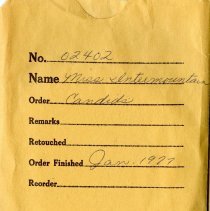 No. 02402
Name Miss Intermountain
Order Candids
Remarks
Retouched
Order Finished Jan. 1977
Reorder